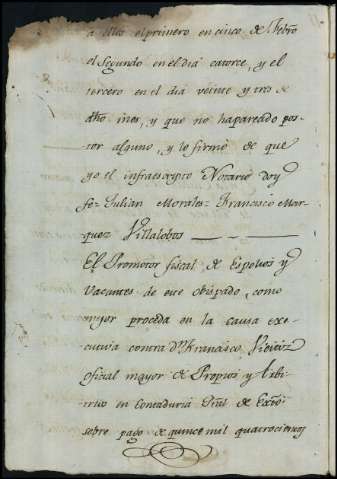 a ellos el primero en cinco de Febro
el segundo en el dia catorce, y el
tercero en el dia veinte y tres de
dho mes, y que no hapareado pos-
tor alguno, y lo firmó de que
yo el infraescripto Notario doy
fe- Julian Morales- Francisco Mar-
quez Villalobos
El Promotor fiscal de Espolios y
Vacantes de este obispado, como
mejor proceda en la causa exe-
cutiva contra Dn Francisco
oficial mayor de Propios y Arbi-
trios en Contaduria Pral de Exto
sobre pago de quince mil quatrocientos